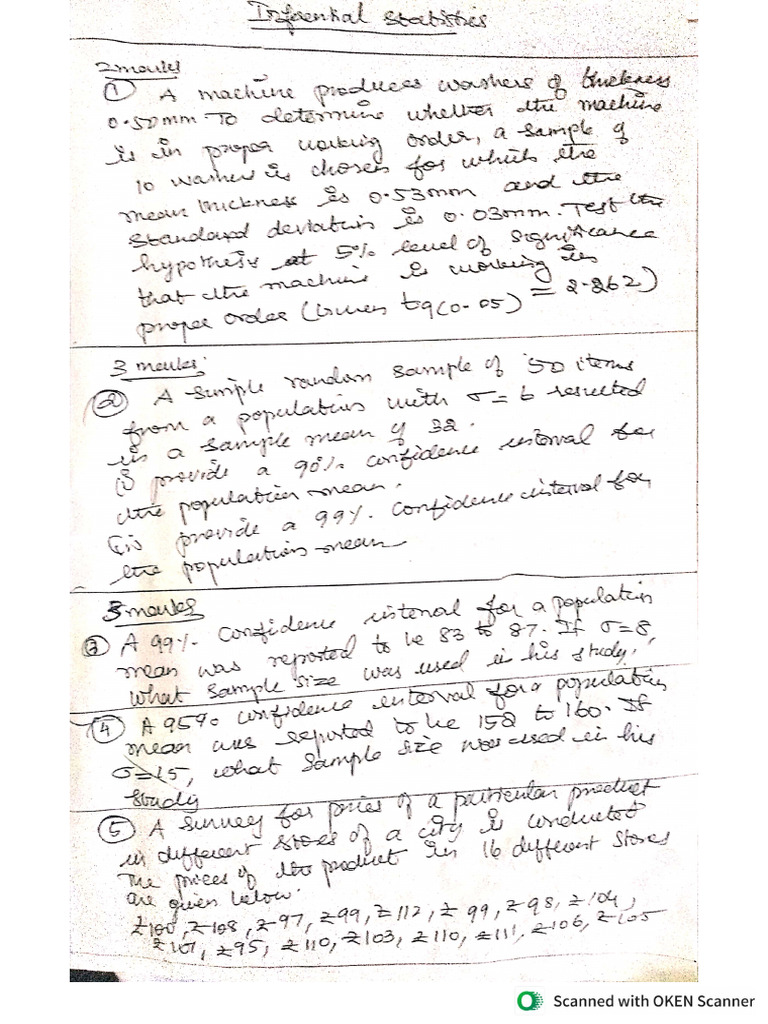 Inferential Statistics
2 marks
① A machine produces washers of thickness
0.50mm To determine whether the machine
is in proper working order, a sample of
10 washers is chosen for which the
mean thickness is 0.53mm and the
standard deviation is 0.03mm. Test the
hypothesis at 5% level of significance
that the machine is working in
proper order (Given t9(0.05) = 2.262)
3 marks:
② A simple random sample of 50 items
from a population with σ=6 resulted
in a sample mean of 32.
(i) provide a 90% confidence interval for
the population mean.
(ii) provide a 99% confidence interval for
the population mean
3 marks
③ A 99% confidence interval for a population
mean was reported to be 83 to 87. If σ=8,
what sample size was used in his study.
④ A 95% confidence interval for a population
mean was reported to be 152 to 160. If
σ=15, what sample size was used in his
study
⑤ A survey for prices of a particular product
in different stores of a city is conducted
The prices of the product in 16 different stores
are given below.
₹100, ₹108, ₹97, ₹99, ₹112, ₹99, ₹98, ₹104,
₹107, ₹95, ₹110, ₹103, ₹110, ₹111, ₹106, ₹105
Scanned with OKEN Scanner